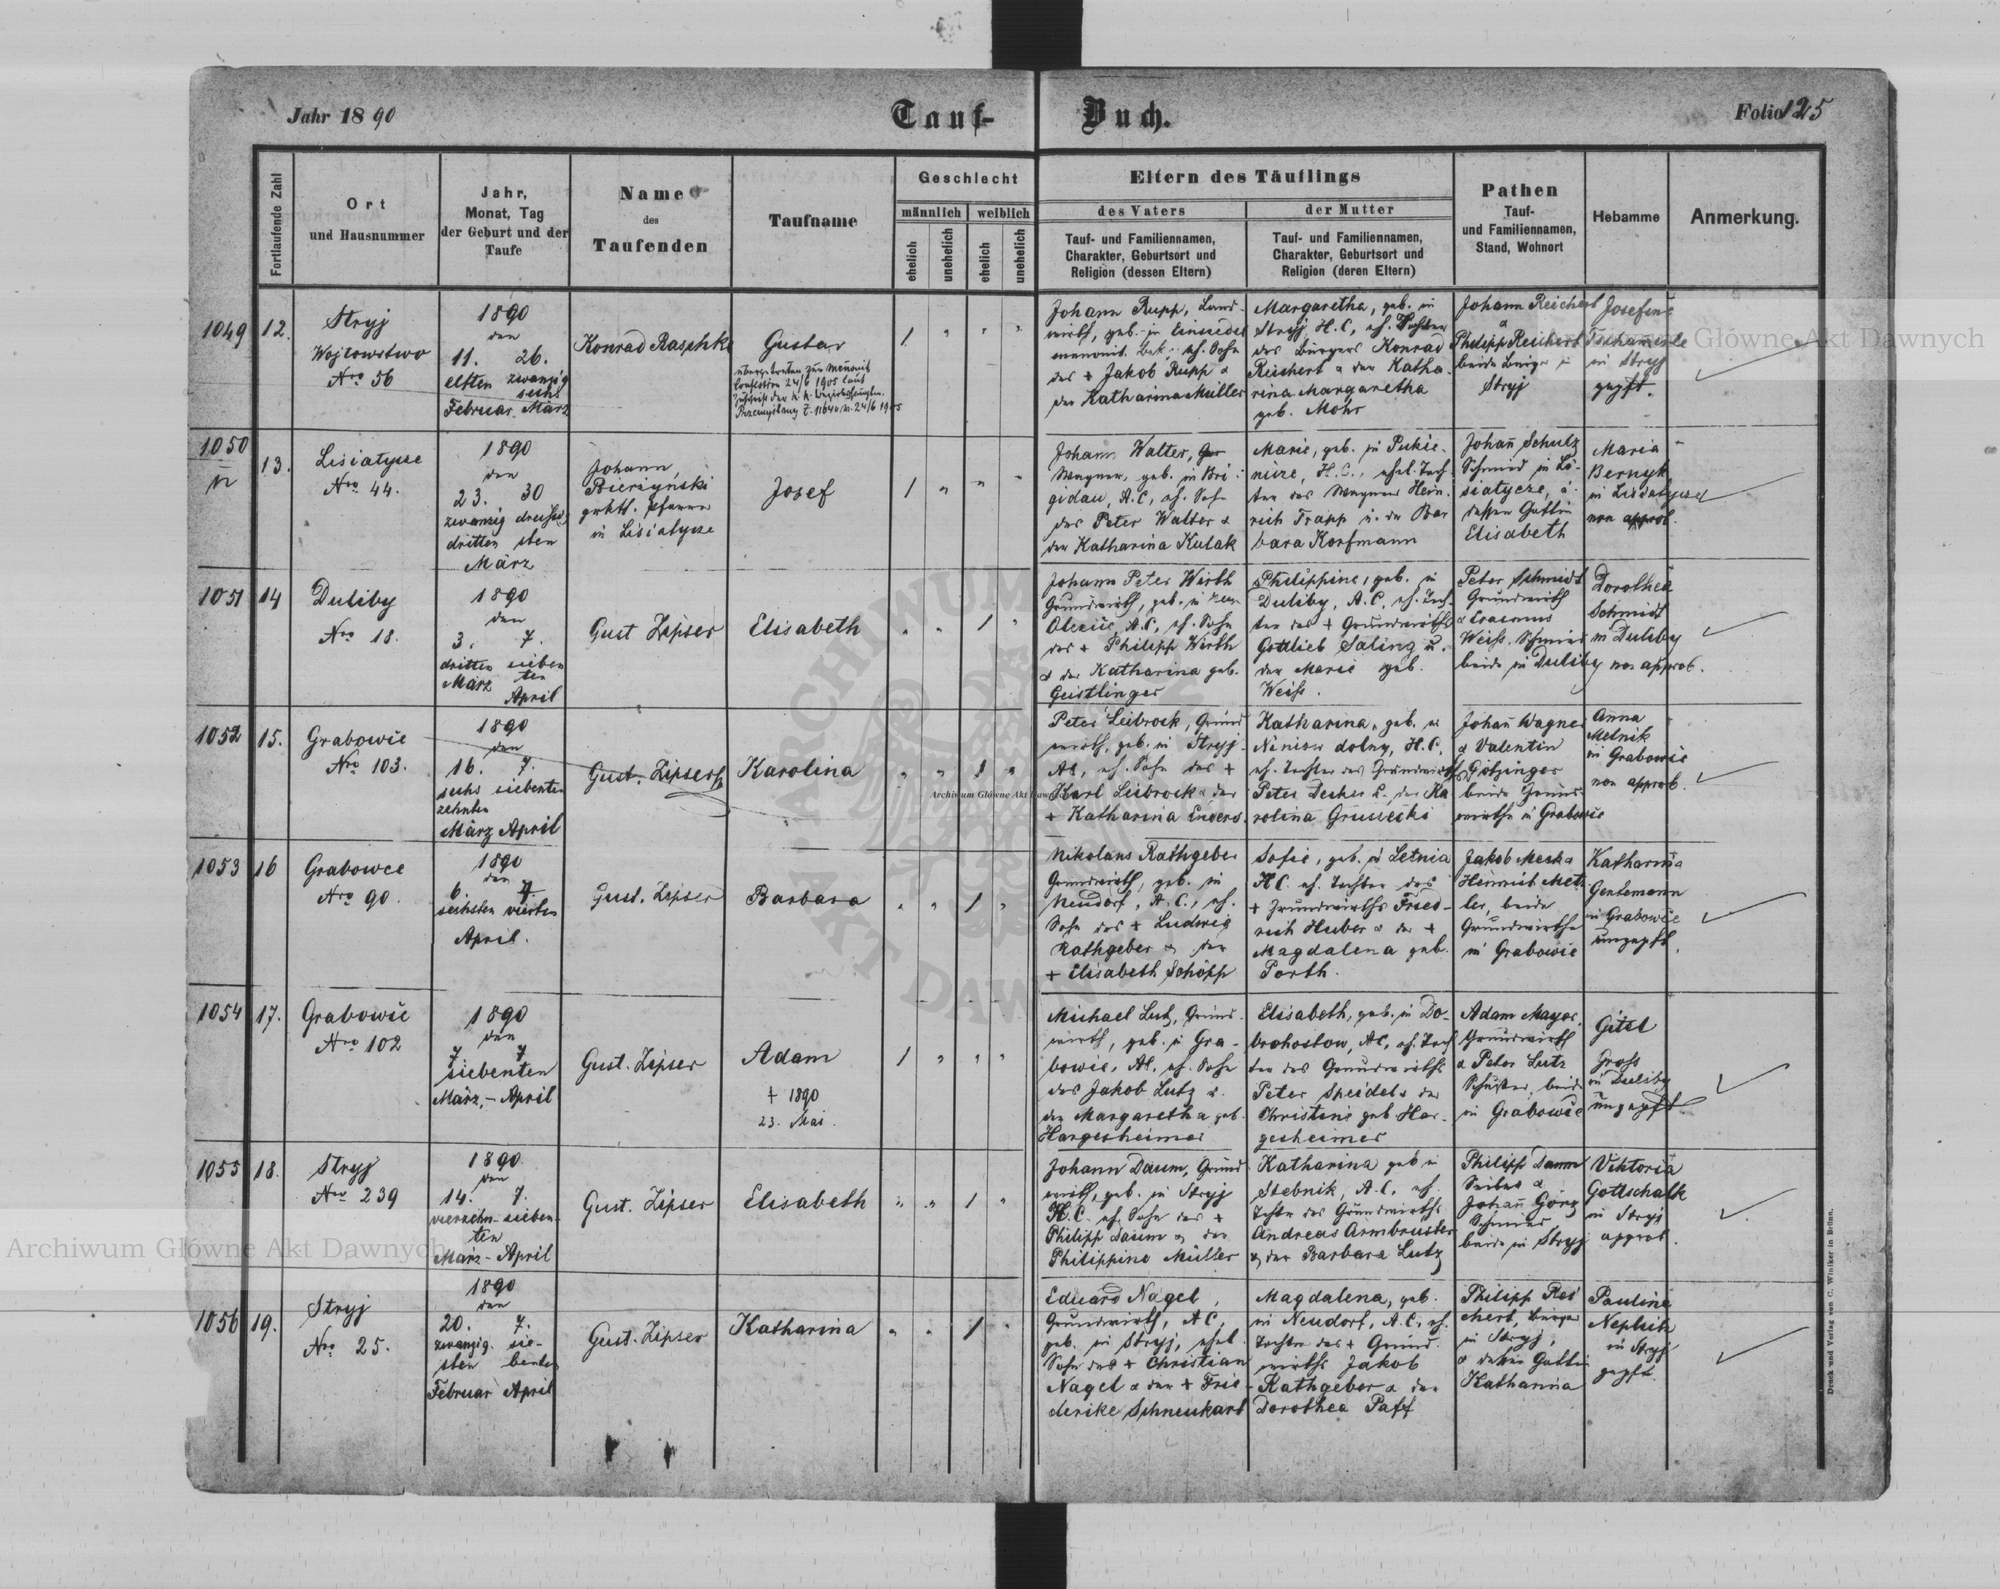 Jahr 1890
Tauf-
Buch.
Folio 125
Fortlaufende Zahl
Ort
und Hausnummer
Jahr,
Monat, Tag
der Geburt und der
Taufe
Name
des
Taufenden
Taufname
Geschlecht
männlich
weiblich
ehelich
unehelich
ehelich
unehelich
Eltern des Täuflings
des Vaters
Tauf- und Familiennamen,
Charakter, Geburtsort und
Religion (dessen Eltern)
der Mutter
Tauf- und Familiennamen,
Charakter, Geburtsort und
Religion (deren Eltern)
Pathen
Tauf-
und Familiennamen,
Stand, Wohnort
Hebamme
Anmerkung.
1049 12.
Stryj
Wojtowstwo
Nro 56
1890
den
11. 26.
elften zwanzig
sechs
Februar März
Konrad Raschke
Gustav
Johann Rupp, Land-
wirth, geb. in Einsiedel
mennonit. Bek., eh. Sohn
des + Jakob Rupp &
der Katharina Müller
Margaretha, geb. in
Stryj H.C, eh. Tochter
des Bürgers Konrad
Reichert & der Katha-
rina Margaretha
geb. Mohr
Johann Reichert
&
Philipp Reichert
beide Bürger in
Stryj
Josefine
Tschamerle
in Stryj
gepft.
1050 13.
Lisiatycze
Nro 44.
1890
den
23. 30
zwanzig dreißig
dritten sten
März
Johann
Bierzyński
grktl. Pfarrer
in Lisiatycze
Josef
Johann Walter,
Wagner, geb. in Bri-
gidau, A.C, eh. Sohn
des Peter Walter &
der Katharina Kulak
Marie, geb. in Pukie-
nicze, H.C., ehel. Toch-
ter des Wagners Hein-
rich Trapp u. der Bar
bara Korfmann
Johañ Schulz
Schmied in Li-
siatycze, &
dessen Gattin
Elisabeth
Maria
Bernyk
in Lisiatycze
non approb.
1051 14
Duliby
Nro 18.
1890
den
3. 7.
dritten sieben
März ten
April
Gust Zipser
Elisabeth
Johann Peter Wirth
Grundwirth, geb. in
A.C, eh. Sohn
des + Philipp Wirth
& der Katharina geb.
Geistlinger
Philippine, geb. in
Duliby, A.C, eh. Toch-
ter des + Grundwirths
Gottlieb Salinz u.
der Marie geb.
Weiss.
Peter Schmidt
Grundwirth
& Erasmus
Weiss, Schmied
beide in Duliby
Dorothea
Schmidt
in Duliby
non approb.
1052 15.
Grabowie
Nro 103.
1890
den
16. 7.
sechs siebenten
zehnten
März April
Gust. Zipser
Karolina
Peter Leibrock, Grund
wirth, geb. in Stryj
AC, eh. Sohn des +
Karl Leibrock & der
+ Katharina Enders
Katharina, geb. in
Niniow dolny, H.C.
eh. Tochter des Grundwirths
Peter Decker & der Ka
rolina Grusiecki
Johañ Wagner
& Valentin
Götzinger
beide Grund-
wirthe in Grabowie
Anna
Melnik
in Grabowie
non approb.
1053 16
Grabowce
Nro 90.
1890
den
6. 4
sechsten vierten
April.
Gust. Zipser
Barbara
Nikolaus Rathgeber
Grundwirth, geb. in
Neudorf, A.C., eh.
Sohn des + Ludwig
Rathgeber & der
+ Elisabeth Schöpp
Sofie, geb. in Letnia
HC eh. Tochter des
+ Grundwirths Fried-
rich Huber & der +
Magdalena geb.
Porth.
Jakob Mecka
Heinrich Metz
ler, beide
Grundwirthe
in Grabowie
Katharina
Gentemann
in Grabowie
ungepft.
1054 17.
Grabowie
Nro 102
1890
den
7 7
siebenten
März, - April
Gust. Zipser
Adam
+ 1890
23. Mai.
Michael Lutz, Grund-
wirth, geb. in Gra-
bowie, AC, eh. Sohn
des Jakob Lutz &
der Margaretha geb.
Hargesheimer
Elisabeth, geb. in Do-
brohostow, AC, eh. Toch
ter des Grundwirths
Peter Speidel & der
Christine geb Har-
gesheimer
Adam Mayer,
Grundwirth
& Peter Lutz
Schuster, beide
in Grabowie
Gitel
Gross
in Duliby
ungepft.
1055 18.
Stryj
Nro 239
1890.
den
14. 7.
vierzehn- sieben-
ten
März - April
Gust. Zipser
Elisabeth
Johann Daum, Grund
wirth, geb. in Stryj
H.C. eh. Sohn des +
Philipp Daum & der
Philippine Müller
Katharina geb in
Stebnik, A.C, eh.
Tochter des Grundwirths
Andreas Armbruster
& der Barbara Lutz
Philipp Daum
Seiler &
Johañ Görz
Schmied
beide in Stryj
Viktoria
Gottschalk
in Stryj
approb.
1056 19.
Stryj
Nro 25.
1890
den
20. 7.
zwanzig. sie-
sten benten
Februar April
Gust. Zipser
Katharina
Eduard Nagel,
Grundwirth, AC,
geb. in Stryj, ehel.
Sohn des + Christian
Nagel & der + Frie-
derike Schneukart
Magdalena, geb.
in Neudorf, A.C, eh.
Tochter des + Grund-
wirths Jakob
Rathgeber & der
Dorothea Paff
Philipp Rei
chert, Bürger
in Stryj,
& dessen Gattin
Katharina
Pauline
in Stryj
gepft.
Druck und Verlag von C. Winiker in Brünn.
Archiwum Główne Akt Dawnych
Archiwum Główne Akt Dawnych
Archiwum Główne Akt Dawnych